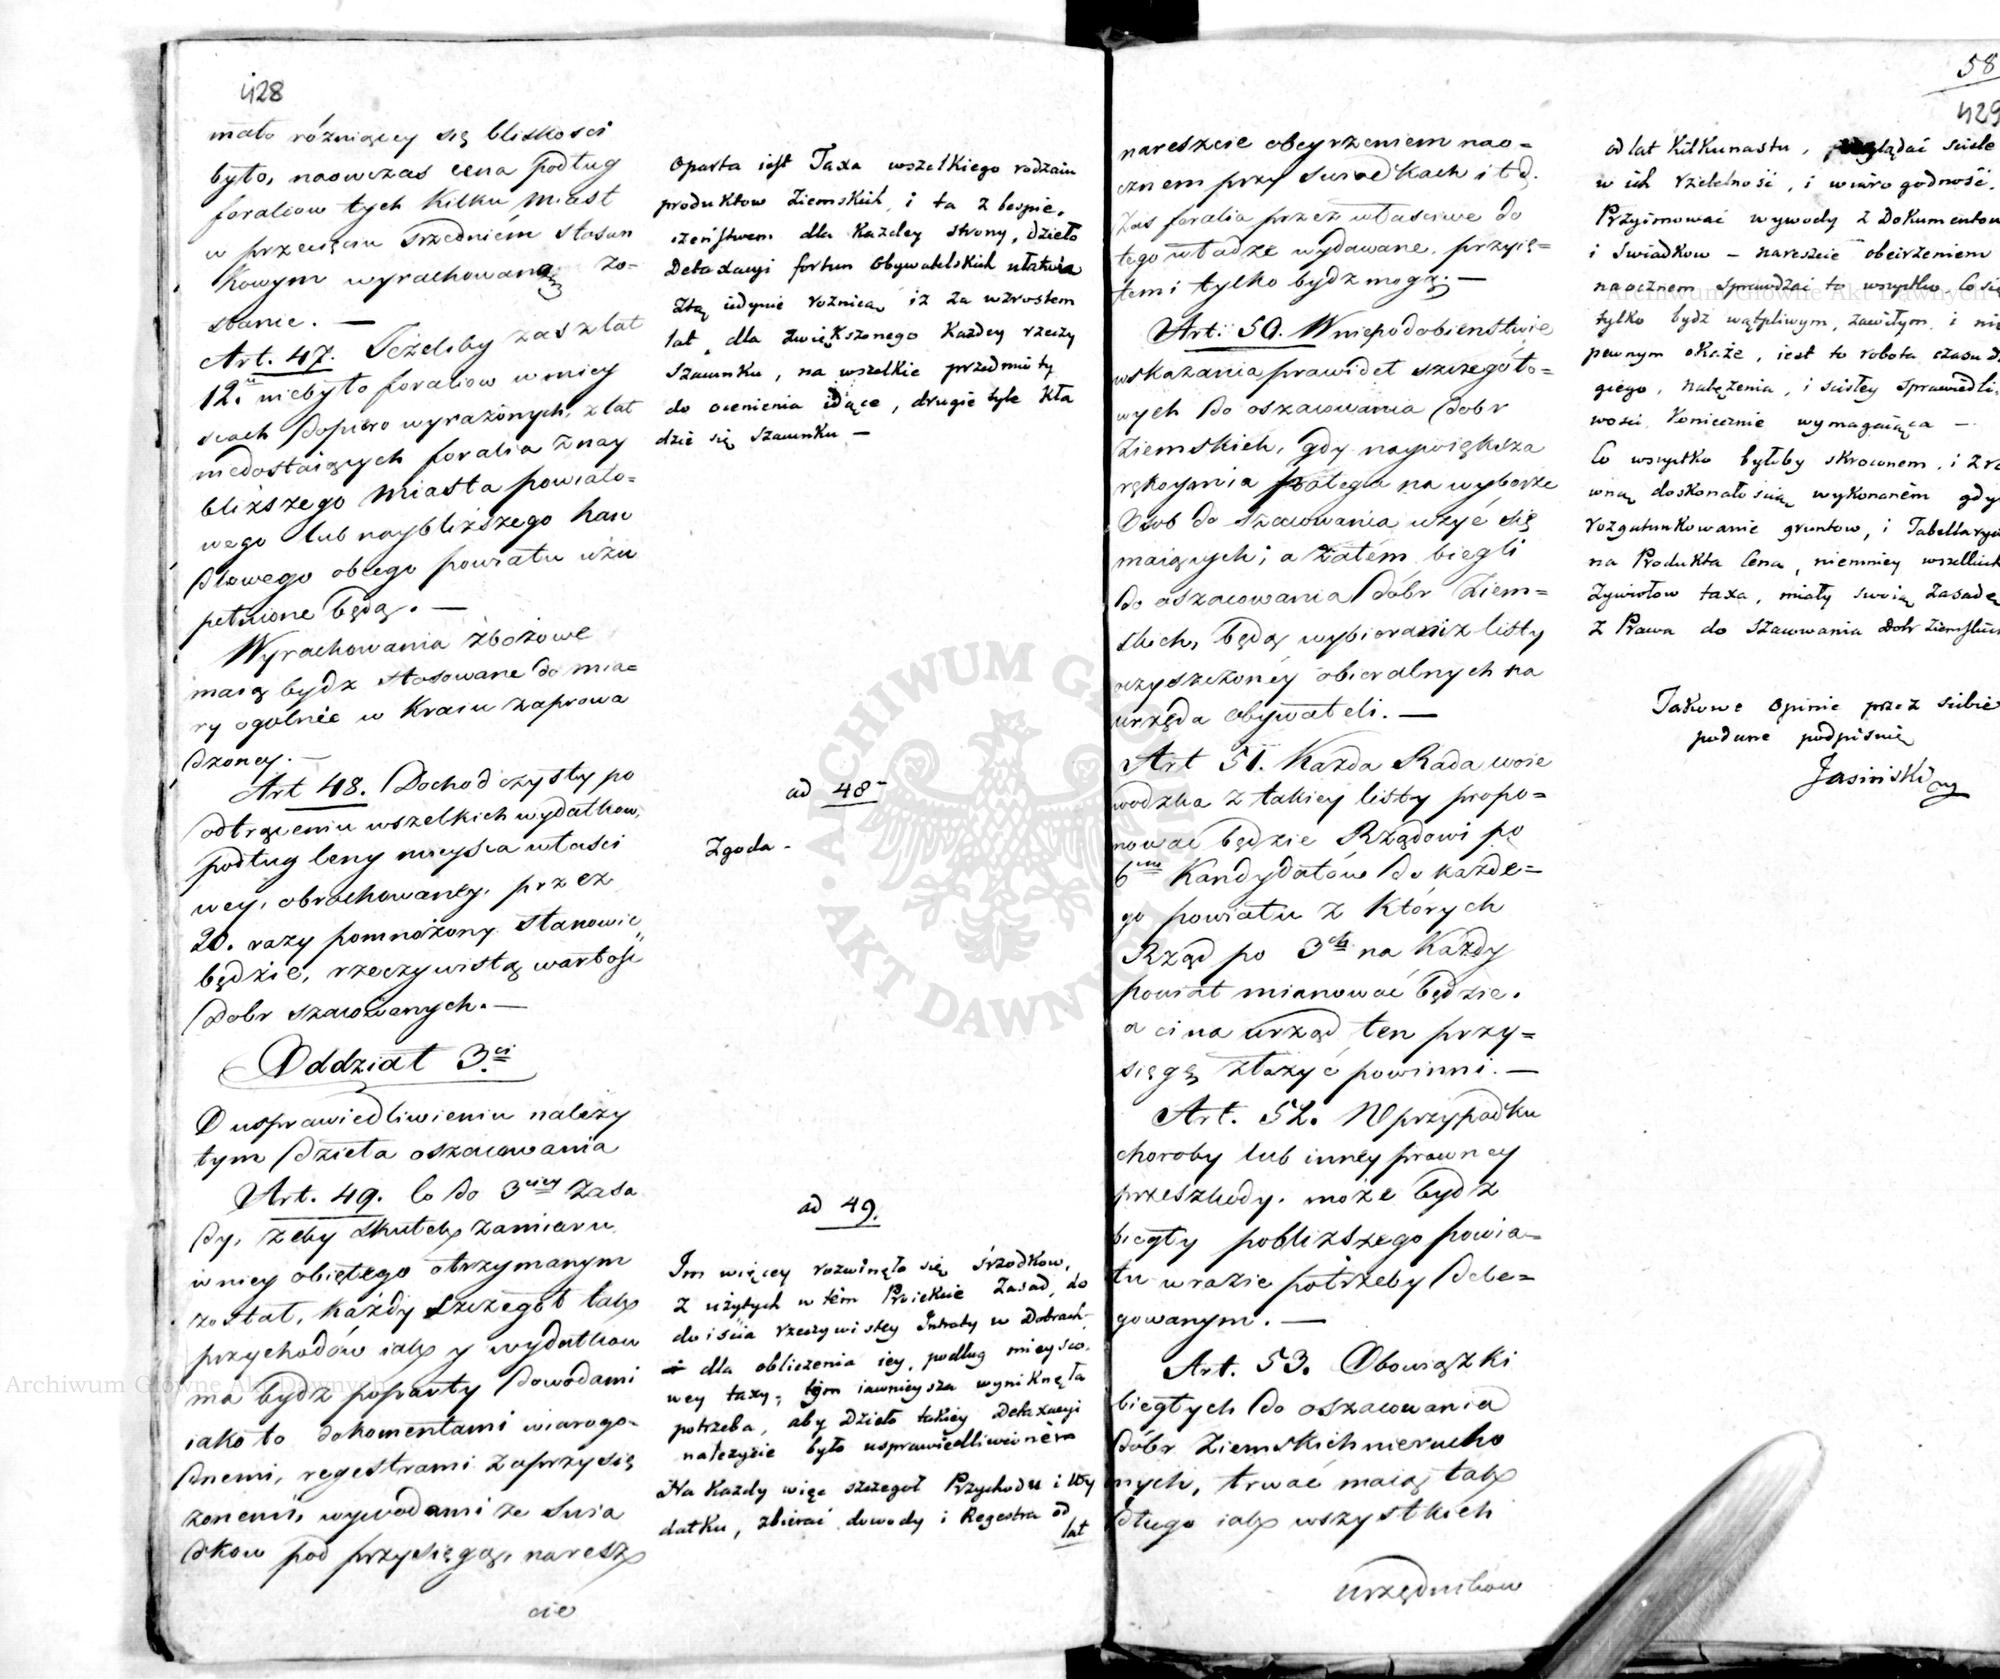 428
mało różniącey się bliskosci
było, naowczas cena podług
foraliow tych kilku miast
w przecięciu srzedniém stosun
kowym wyrachowaną zo-
stanie. —
Art. 47. Jeżeliby zaś z lat
12. niebyło foraliow w miey
scach dopiero wyrażonych, z lat
niedostaiących foralia z nay
bliższego miasta powiato=
wego lub naybliższego han
dlowego obcego powiatu uzu
pełnione będą. —
Wyrachowania zbożowe
maią bydz stosowane do mia=
ry ogolnie w Kraiu zaprowa
dzoney. —
Art 48. Dochod czysty po
odtrąceniu wszelkich wydatkow,
podług ceny mieysca właści
wey, obrachowaney, przez
20. razy pomnożony stanowić
będzie, rzeczywistą wartość
dobr szacowanych. —
Oddział 3ci
O usprawiedliwieniu należy
tym dzieła oszacowania
Art. 49. Co do 3ciey zasa
dy, żeby skutek zamiaru
w niey obiętego otrzymanym
został, każdy szczegół tak
przychodów iak y wydatkow
ma bydz poparty dowodami
iako to dokomentami wiarogo-
dnemi, regestrami zaprzysię
żonemi, wywodami ze Swia
dkow pod przysięgą, naresz
cie
Oparta iest Taxa wszelkiego rodzaiu
produktow Ziemskich, i ta z bespie-
czeństwem dla Każdey strony, dzieło
Detaxacyi fortun Obywatelskich ułatwia
Ztą iedynie roznicą iz za wzrostem
lat, dla zwiększonego Każdey rzeczy
Szacunku, na wszelkie przedmioty
do ocenienia idące, drugie tyle kła
dzie się szacunku —
ad 48
Zgoda -
ad 49.
Im więcey rozwinęło się śrzodkow,
z użytych w tém Proiekcie Zasad, do
doiścia rzeczywistey Intraty w Dobrach
dla obliczenia iey, podług mieysco,
wey taxy, tym iawnieysza wyniknęła
potrzeba, aby Dzieło takiey Detaxacyi
należycie było usprawiedliwioném
Na Każdy więc szczegoł Przychodu i Wy
datku, zbierać dowody i Regestra od
lat
58
429
nareszcie obeyrzeniem nao=
cznem przy swiadkach i t d.
Zaś foralia przez właściwe do
tego władze wydawane, przyię=
temi tylko bydz mogą. —
Art. 50. W niepodobienstwie
wskazania prawideł szczegóło=
wych do oszacowania dobr
Ziemskich, gdy naywiększa
rękoymia polega na wyborze
Osob do szacowania użyć się
maiących; a zatém biegli
do oszacowania dóbr Ziem=
skich, będą wybierani z listy
oczyszczoney obieralnych na
urzęda obywateli. —
Art 51. Każda Rada woie
wodzka z takiey listy propo=
nować będzie Rządowi po
6ciu Kandydatów do każde=
go powiatu z których
Rząd po 3ch na Każdy
powiat mianować będzie,
a ci na urząd ten przy=
sięgę złożyć powinni. —
Art. 52. W przypadku
choroby lub inney prawney
przeszkody, może bydz
biegły pobliższego powia=
tu w razie potrzeby dele=
gowanym. —
Art. 53. Obowiązki
biegłych do oszacowania
dóbr Ziemskich nierucho
mych, trwać maią tak
długo iak wszystkich
urzędnikow
od lat Kilkunastu, poglądać scisle
w ich rzetelność, i wiarogodność,
Przyimować wywody z Dokumentow
i Swiadkow – nareszcie obeirzeniem
naocznem sprawdzać to wszystko Co się
tylko bydz wątpliwym, zawiłym, i nie
pewnym okaże, iest to robota czasu d
giego, natężenia, i scisłey sprawiedli,
wosci Koniecznie wymagaiąca —
Co wszystko byłoby skroconem, i z ro
wną doskonałością wykonaném gdy
rozgatunkowanie gruntow, i Tabellaryc
na Produkta Cena, niemniey wszelkich
Zywiołow taxa, miały swoią Zasadę
z Prawa do szacowania Dobr Ziemskich
Takowe Opinie przez siebie
podane podpisuię
Jasiński
Archiwum Główne Akt Dawnych
ARCHIWUM GŁÓWNE AKT DAWNYCH